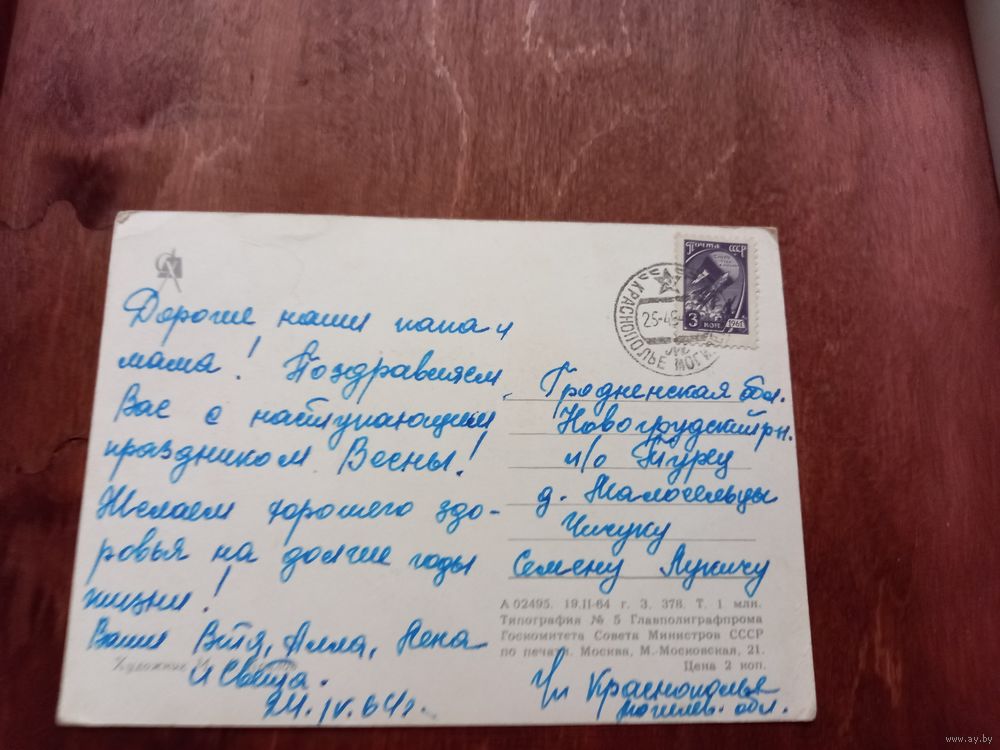 Дорогие наши папа и
мама! Поздравляем
Вас с наступающим
праздником Весны!
Желаем хорошего здо-
ровья на долгие годы
жизни!
Ваши Витя, Алла, Лена
и Света.
24.IV.64 г.
Художник
ПОЧТА СССР
3 КОП 1961
КРАСНОПОЛЬЕ МОГИЛ
25-4
Гродненская обл.
Новогрудский рн.
п/о Турец
д.
Семену Лукичу
А 02495. 19.II-64 г. З. 378. Т. 1 млн.
Типография № 5 Главполиграфпрома
Госкомитета Совета Министров СССР
по печати. Москва, М. Московская, 21.
Цена 2 коп.
Краснополья
могилев. обл.
www.ay.by